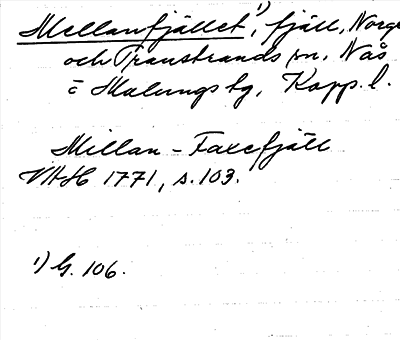 Mellanfjället,¹⁾ fjäll, Norge
och Transtrands sn, Nås
o Malungs tg, Kopp. l.
Millan - Faxefjäll
VAH 1771, s. 103.
¹⁾ G. 106.